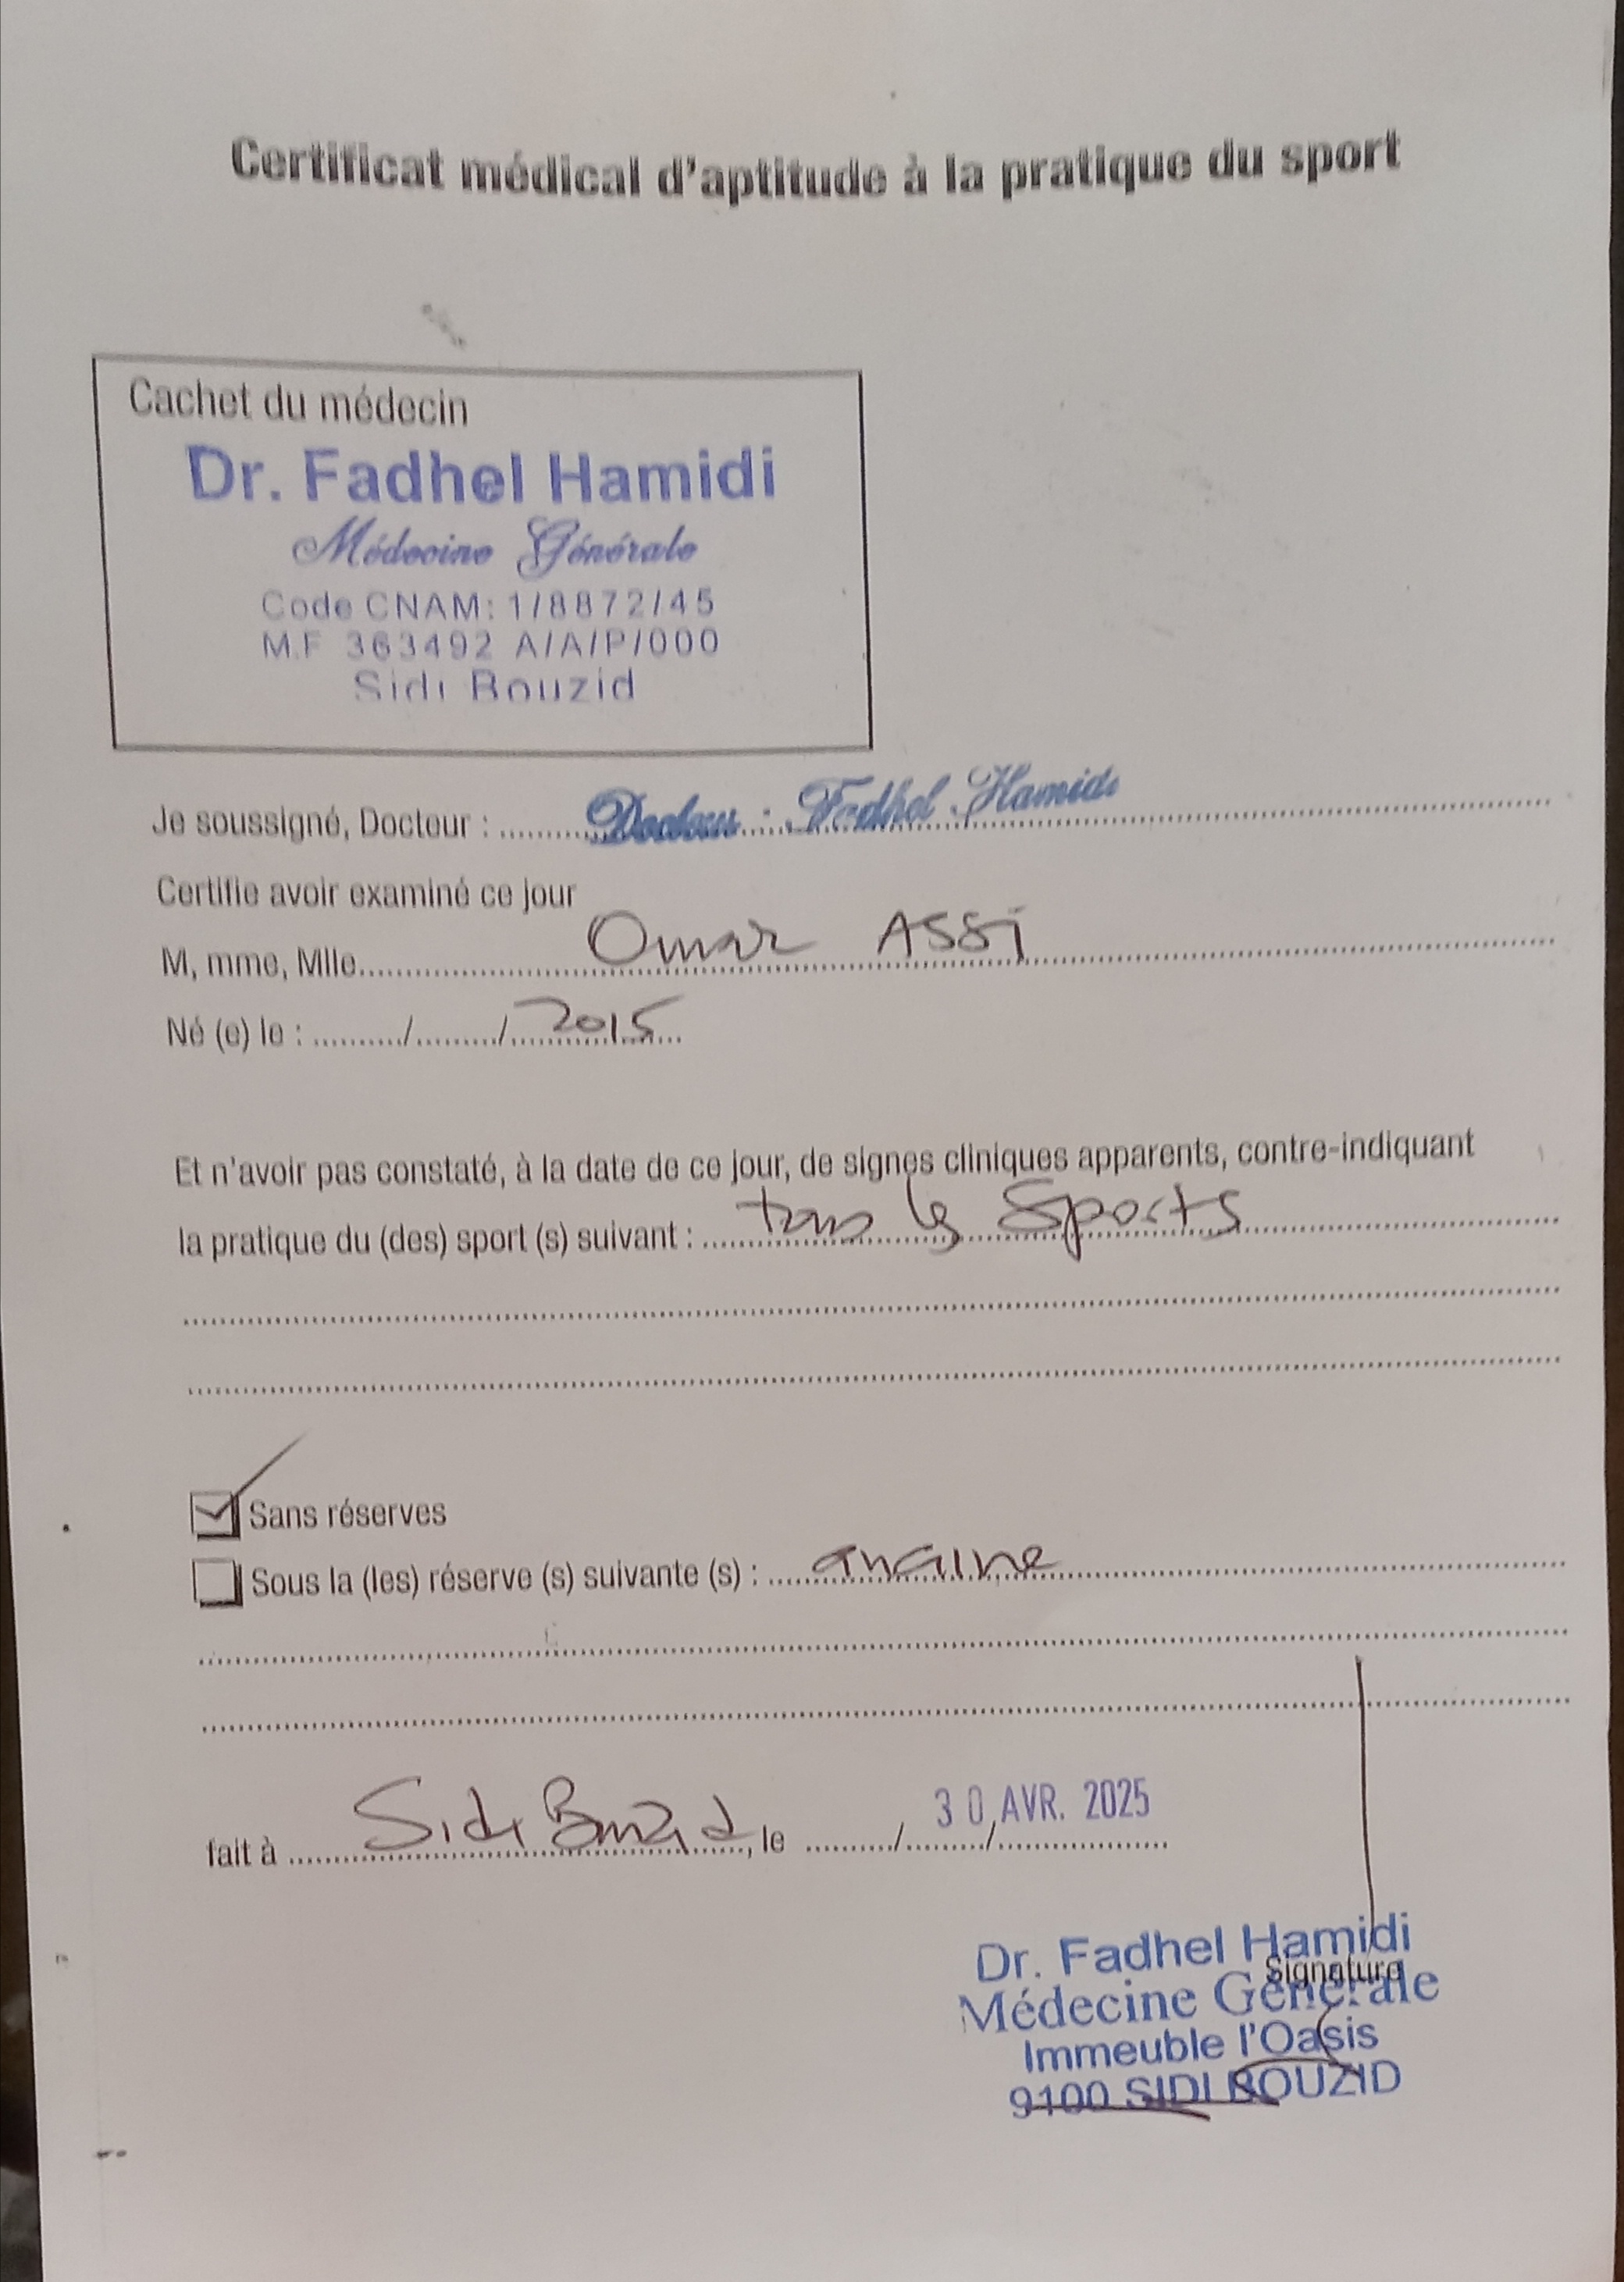 Certificat médical d'aptitude à la pratique du sport
Cachet du médecin
Dr. Fadhel Hamidi
Médecine Générale
Code CNAM: 1/8872/45
M.F 363492 A/A/P/000
Sidi Bouzid
Je soussigné, Docteur : Docteur : Fadhel Hamidi
Certifie avoir examiné ce jour
M, mme, Mlle Omar ASSI
Né (e) le : ........./........./ 2015
Et n'avoir pas constaté, à la date de ce jour, de signes cliniques apparents, contre-indiquant
la pratique du (des) sport (s) suivant : tous les Sports
Sans réserves
Sous la (les) réserve (s) suivante (s) : aucune
fait à Sidi Bouzid, le 30 AVR. 2025
Dr. Fadhel Hamidi
Signature
Médecine Générale
Immeuble l'Oasis
9100 SIDI BOUZID